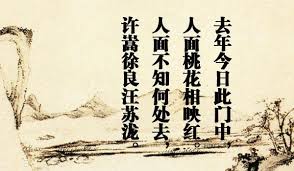 去年今日此门中，
人面桃花相映红。
人面不知何处去，
许嵩徐良汪苏泷。